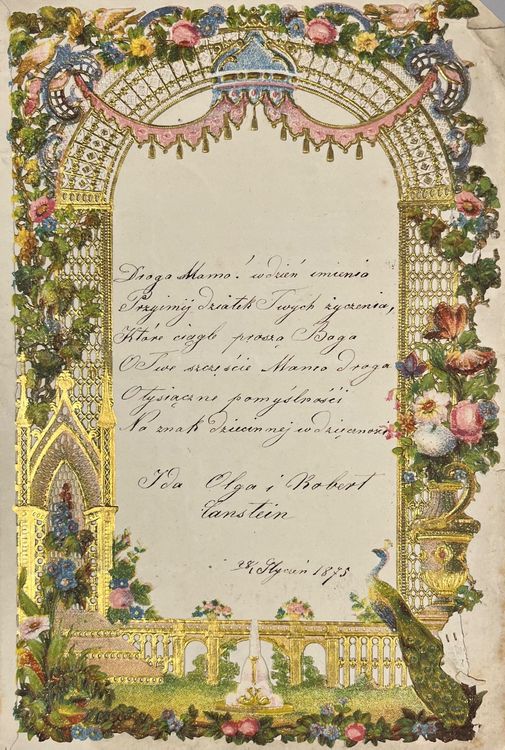 Droga Mamo! w dzień imienia
Przyimij dziatek Twych życzenia,
Które ciągle proszą Boga
O Twe szczęście Mamo droga
O tysiączne pomyślności
Na znak dziecinnej wdzięczności
Ida Olga i Robert
Canstein
Styczeń 1875